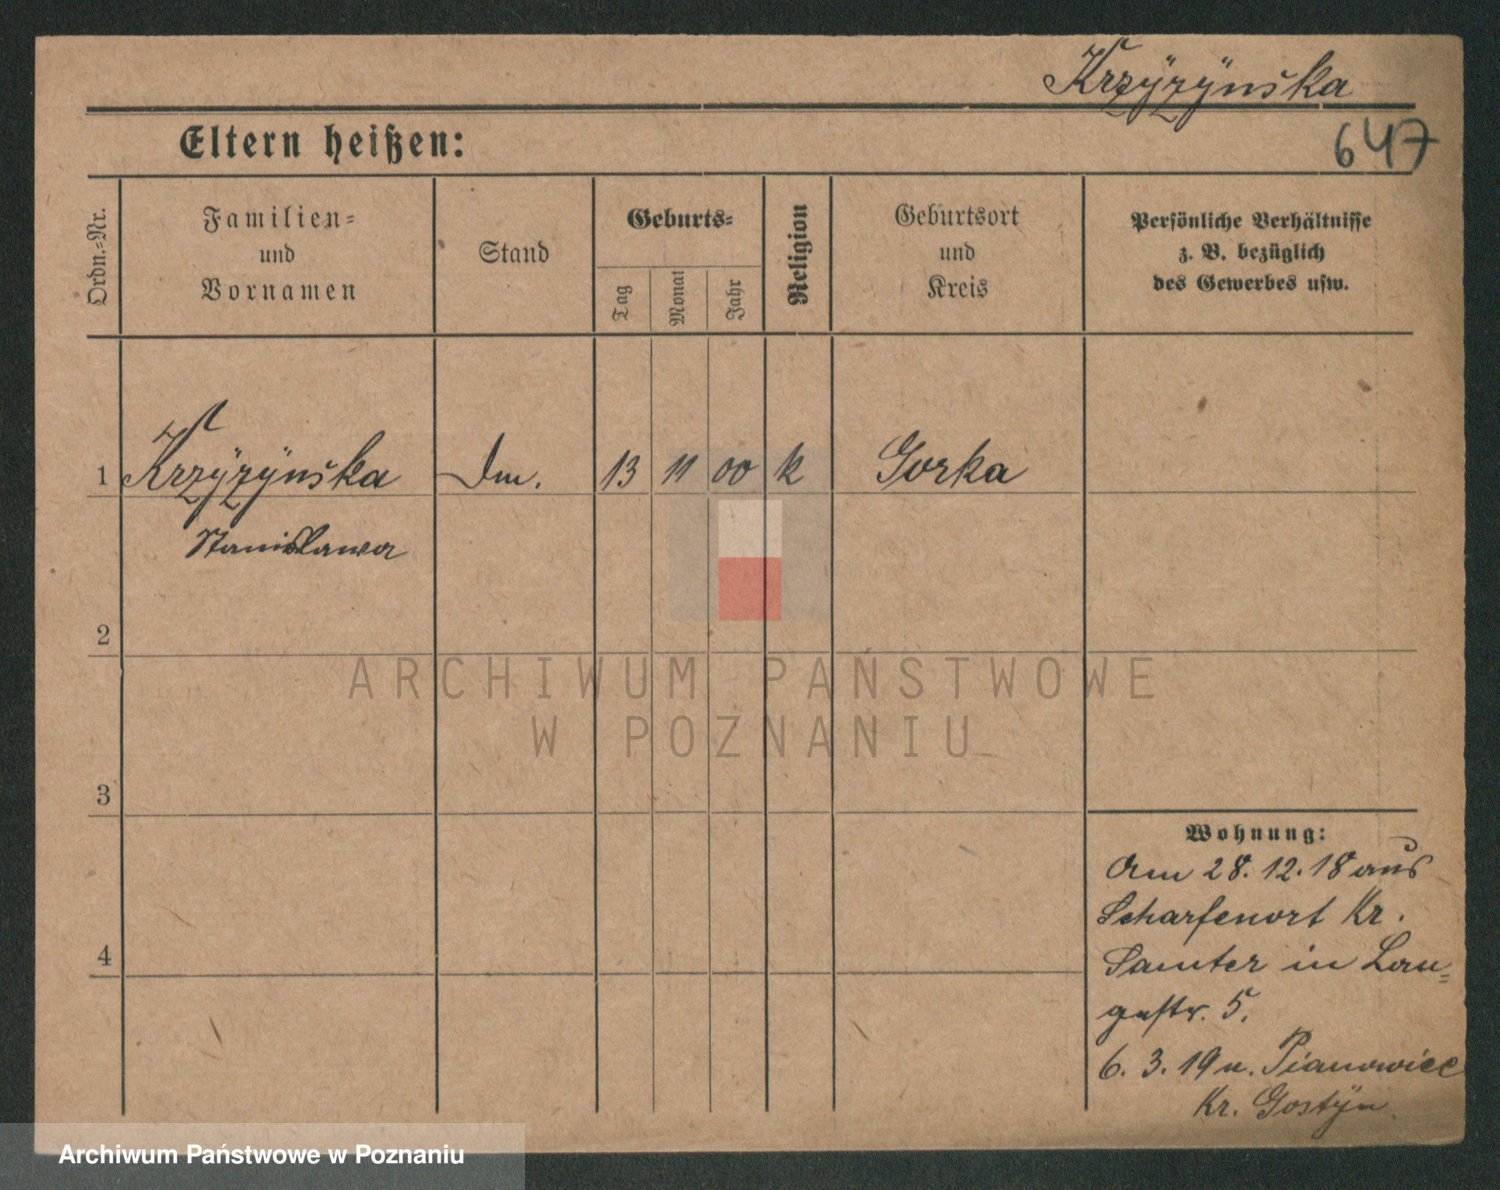 Krzÿzÿnska
Eltern heißen:
647
Ordn.=Nr.
Familien=
und
Vornamen
Stand
Geburts=
Tag
Monat
Jahr
Religion
Geburtsort
und
Kreis
Persönliche Verhältnisse
z. B. bezüglich
des Gewerbes usw.
1 Krzÿzÿnska Dm. 13 11 00 k Gorka
Stanislawa
2
3
4
Wohnung:
Am 28.12.18 aus
Scharfenort Kr.
Samter in Lan=
gestr. 5.
6. 3. 19 n. Pianowiec
Kr. Gostÿn.
ARCHIWUM PAŃSTWOWE
W POZNANIU
Archiwum Państwowe w Poznaniu